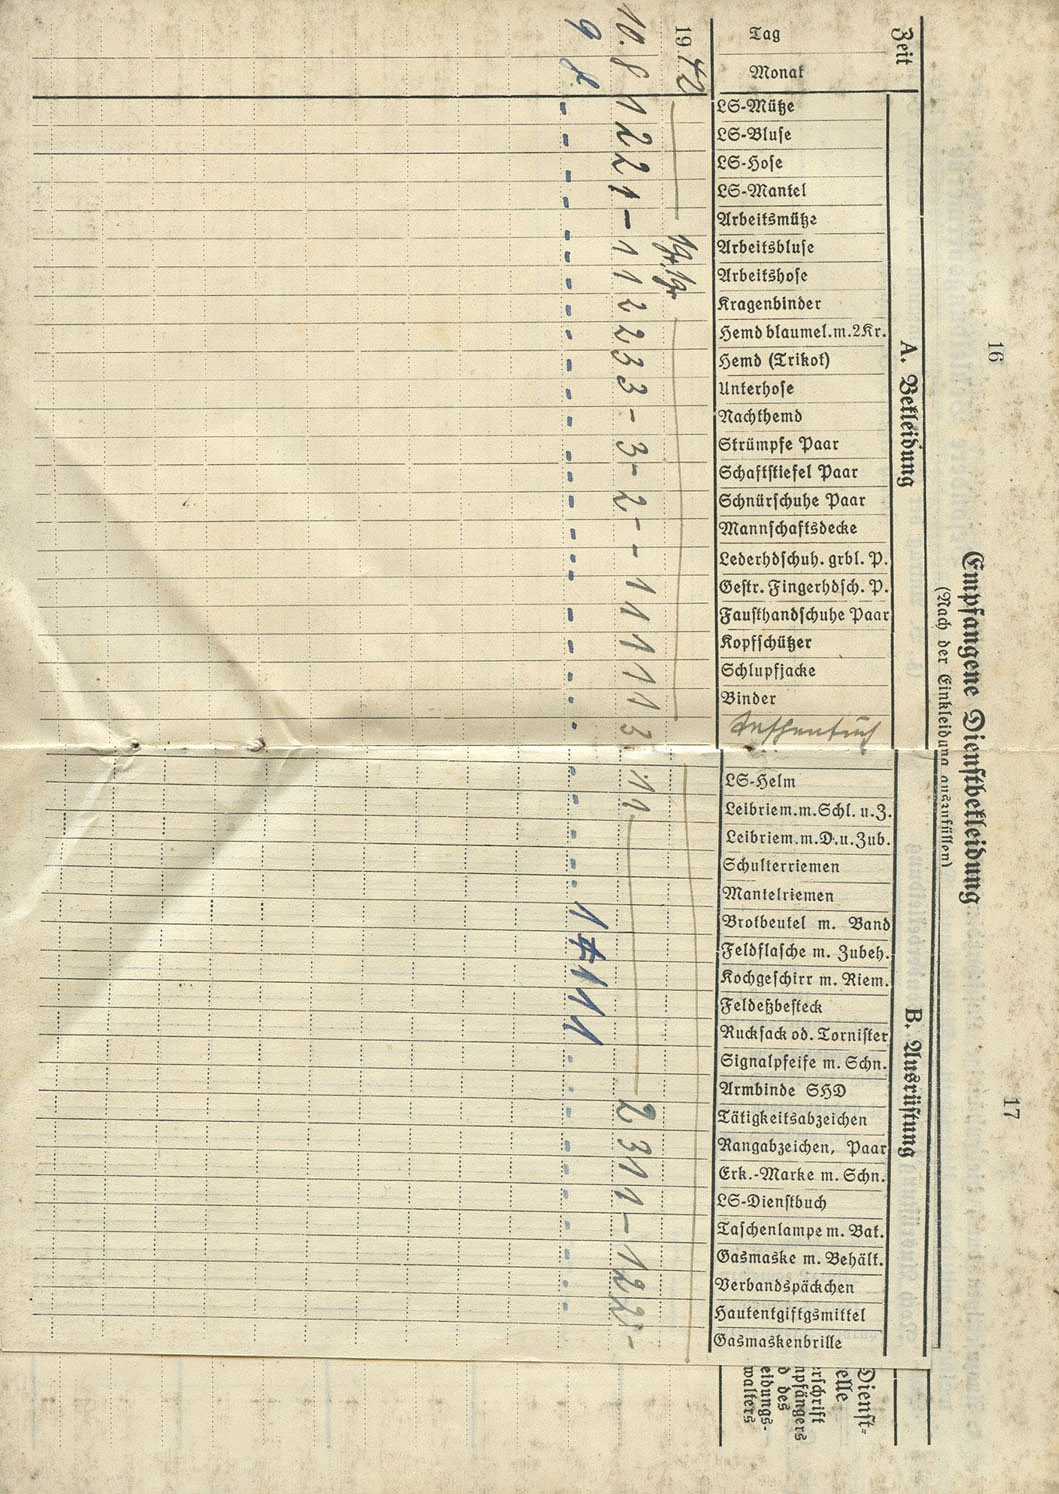 16
17
Empfangene Dienstbekleidung
(Nach der Einkleidung auszufüllen)
Zeit
A. Bekleidung
B. Ausrüstung
Tag
Monat
LS-Mütze
LS-Bluse
LS-Hose
LS-Mantel
Arbeitsmütze
Arbeitsbluse
Arbeitshose
Kragenbinder
Hemd blaumel.m.2Kr.
Hemd (Trikot)
Unterhose
Nachthemd
Strümpfe Paar
Schaftstiefel Paar
Schnürschuhe Paar
Mannschaftsdecke
Lederhdschuh. grbl. P.
Gestr. Fingerhdsch. P.
Fausthandschuhe Paar
Kopfschützer
Schlupfjacke
Binder
Taschentuch
LS-Helm
Leibriem.m.Schl.u.Z.
Leibriem.m.D.u.Zub.
Schulterriemen
Mantelriemen
Brotbeutel m. Band
Feldflasche m. Zubeh.
Kochgeschirr m. Riem.
Feldeßbesteck
Rucksack od. Tornister
Signalpfeife m. Schn.
Armbinde SHD
Tätigkeitsabzeichen
Rangabzeichen, Paar
Erk.-Marke m. Schn.
LS-Dienstbuch
Taschenlampe m. Bat.
Gasmaske m. Behält.
Verbandspäckchen
Hautentgiftgsmittel
Gasmaskenbrille
Dienst-
elle
rschrift
npfängers
d des
eidungs-
walters
1942
10. 8 1 2 2 1 – 1 1 2 2 3 3 – 3 – 2 – – 1 1 1 1 1 3 1 1 2 3 1 1 – 1 2 2 –
9 8. 1 1 1 1